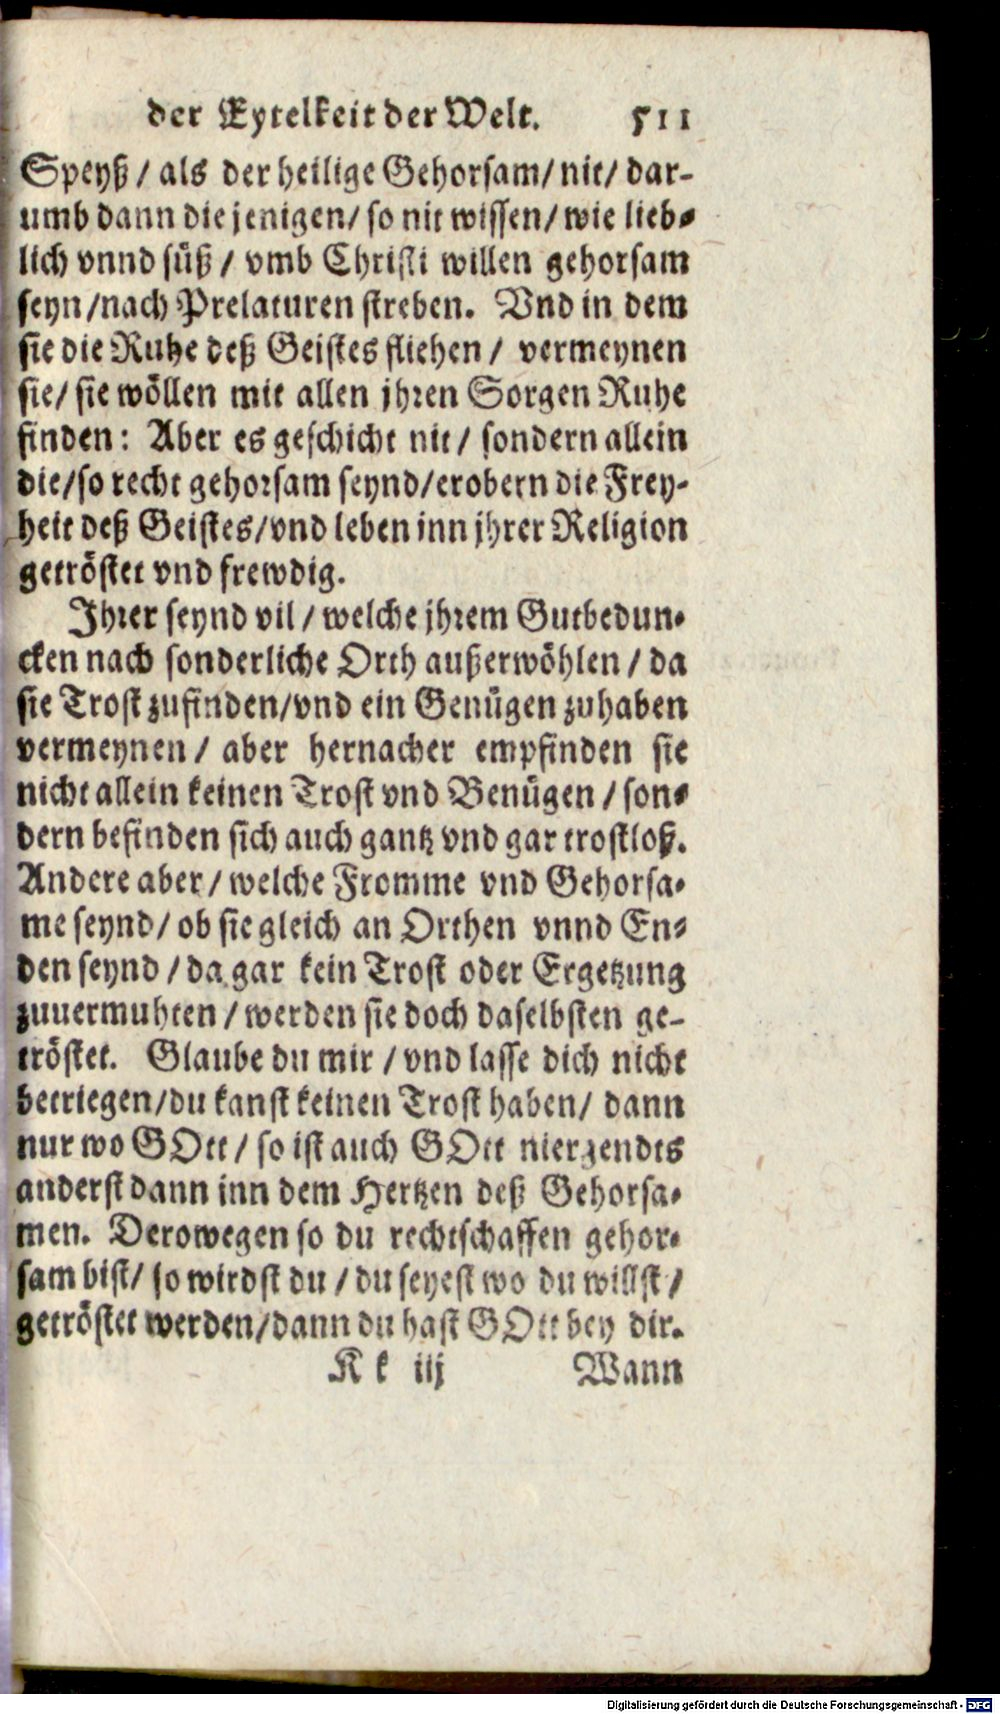 der Eytelkeit der Welt. 511
Speyß / als der heilige Gehorsam / nit / dar-
umb dann die jenigen / so nit wissen / wie lieb-
lich vnnd süß / vmb Christi willen gehorsam
seyn / nach Prelaturen streben. Vnd in dem
sie die Ruhe deß Geistes fliehen / vermeynen
sie / sie wöllen mit allen jhren Sorgen Ruhe
finden: Aber es geschicht nit / sondern allein
die / so recht gehorsam seynd / erobern die Frey-
heit deß Geistes / vnd leben inn jhrer Religion
getröstet vnd frewdig.
Ihrer seynd vil / welche jhrem Gutbedun-
cken nach sonderliche Orth außerwöhlen / da
sie Trost zufinden / vnd ein Genügen zuhaben
vermeynen / aber hernacher empfinden sie
nicht allein keinen Trost vnd Benügen / son-
dern befinden sich auch gantz vnd gar trostloß.
Andere aber / welche Fromme vnd Gehorsa-
me seynd / ob sie gleich an Orthen vnnd En-
den seynd / da gar kein Trost oder Ergetzung
zuuermuhten / werden sie doch daselbsten ge-
tröstet. Glaube du mir / vnd lasse dich nicht
betriegen / du kanst keinen Trost haben / dann
nur wo GOtt / so ist auch GOtt nierzendts
anderst dann inn dem Hertzen deß Gehorsa-
men. Derowegen so du rechtschaffen gehor-
sam bist / so wirdst du / du seyest wo du willst /
getröstet werden / dann du hast GOtt bey dir.
K k iij Wann
Digitalisierung gefördert durch die Deutsche Forschungsgemeinschaft - DFG